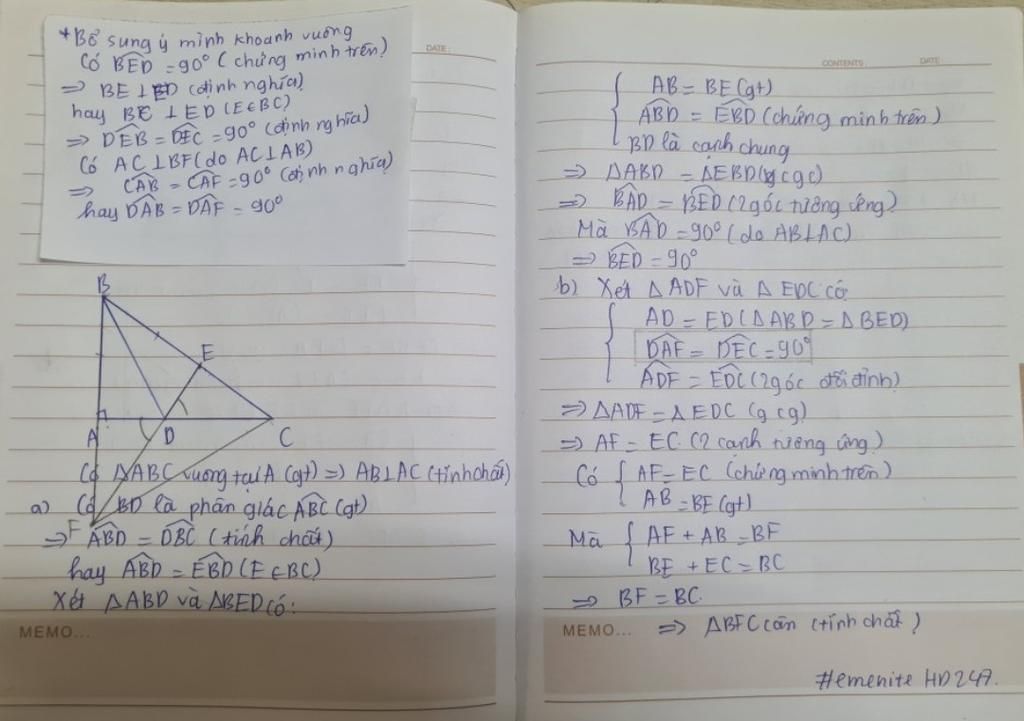 +Bổ sung ý mình khoanh vuông
Có BED = 90° (chứng minh trên)
=> BE ⊥ ED (định nghĩa)
hay BC ⊥ ED (E ∈ BC)
=> DEB = DEC = 90° (định nghĩa)
Có AC ⊥ BF (do AC ⊥ AB)
=> CAB = CAF = 90° (định nghĩa)
hay DAB = DAF = 90°
DATE:
B
E
A
D
C
F
Có ΔABC vuông tại A (gt) => AB ⊥ AC (tính chất)
a) Có BD là phân giác ABC (gt)
=> ABD = DBC (tính chất)
hay ABD = EBD (E ∈ BC)
Xét ΔABD và ΔBED có:
MEMO...
CONTENTS:
DATE:
AB = BE (gt)
ABD = EBD (chứng minh trên)
BD là cạnh chung
=> ΔABD = ΔEBD (cgc)
=> BAD = BED (2 góc tương ứng)
Mà BAD = 90° (do AB ⊥ AC)
=> BED = 90°
b) Xét ΔADF và ΔEDC có
AD = ED (ΔABD = ΔBED)
DAF = DEC = 90°
ADF = EDC (2 góc đối đỉnh)
=> ΔADF = ΔEDC (gcg)
=> AF = EC (2 cạnh tương ứng)
Có { AF = EC (chứng minh trên)
AB = BE (gt)
Mà { AF + AB = BF
BE + EC = BC
=> BF = BC
=> ΔBFC cân (tính chất)
MEMO...
#emenite HD247.